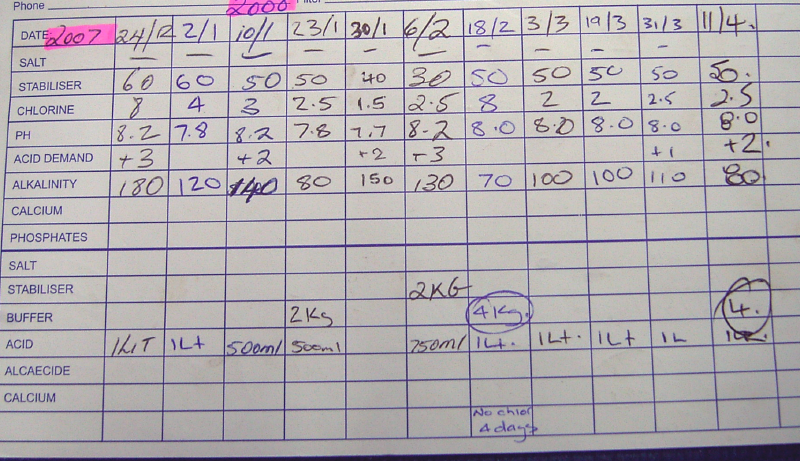 Phone 2000
DATE 2007 24/12 2/1 10/1 23/1 30/1 6/2 18/2 3/3 19/3 31/3 11/4.
SALT — — — — — — — — — —
STABILISER 60 60 50 50 40 30 50 50 50 50 50.
CHLORINE 8 4 3 2.5 1.5 2.5 8 2 2 2.5 2.5
PH 8.2 7.8 8.2 7.8 7.7 8.2 8.0 8.0 8.0 8.0 8.0
ACID DEMAND +3 +2 +2 +3 +1 +2.
ALKALINITY 180 120 140 80 150 130 70 100 100 110 80
CALCIUM
PHOSPHATES
SALT
STABILISER 2KG
BUFFER 2Kg 4Kg. 4.
ACID 1LIT 1Lt 500ml 500ml 750ml 1Lt. 1Lt. 1Lt 1L
ALCAECIDE
CALCIUM
No chlor
4 days